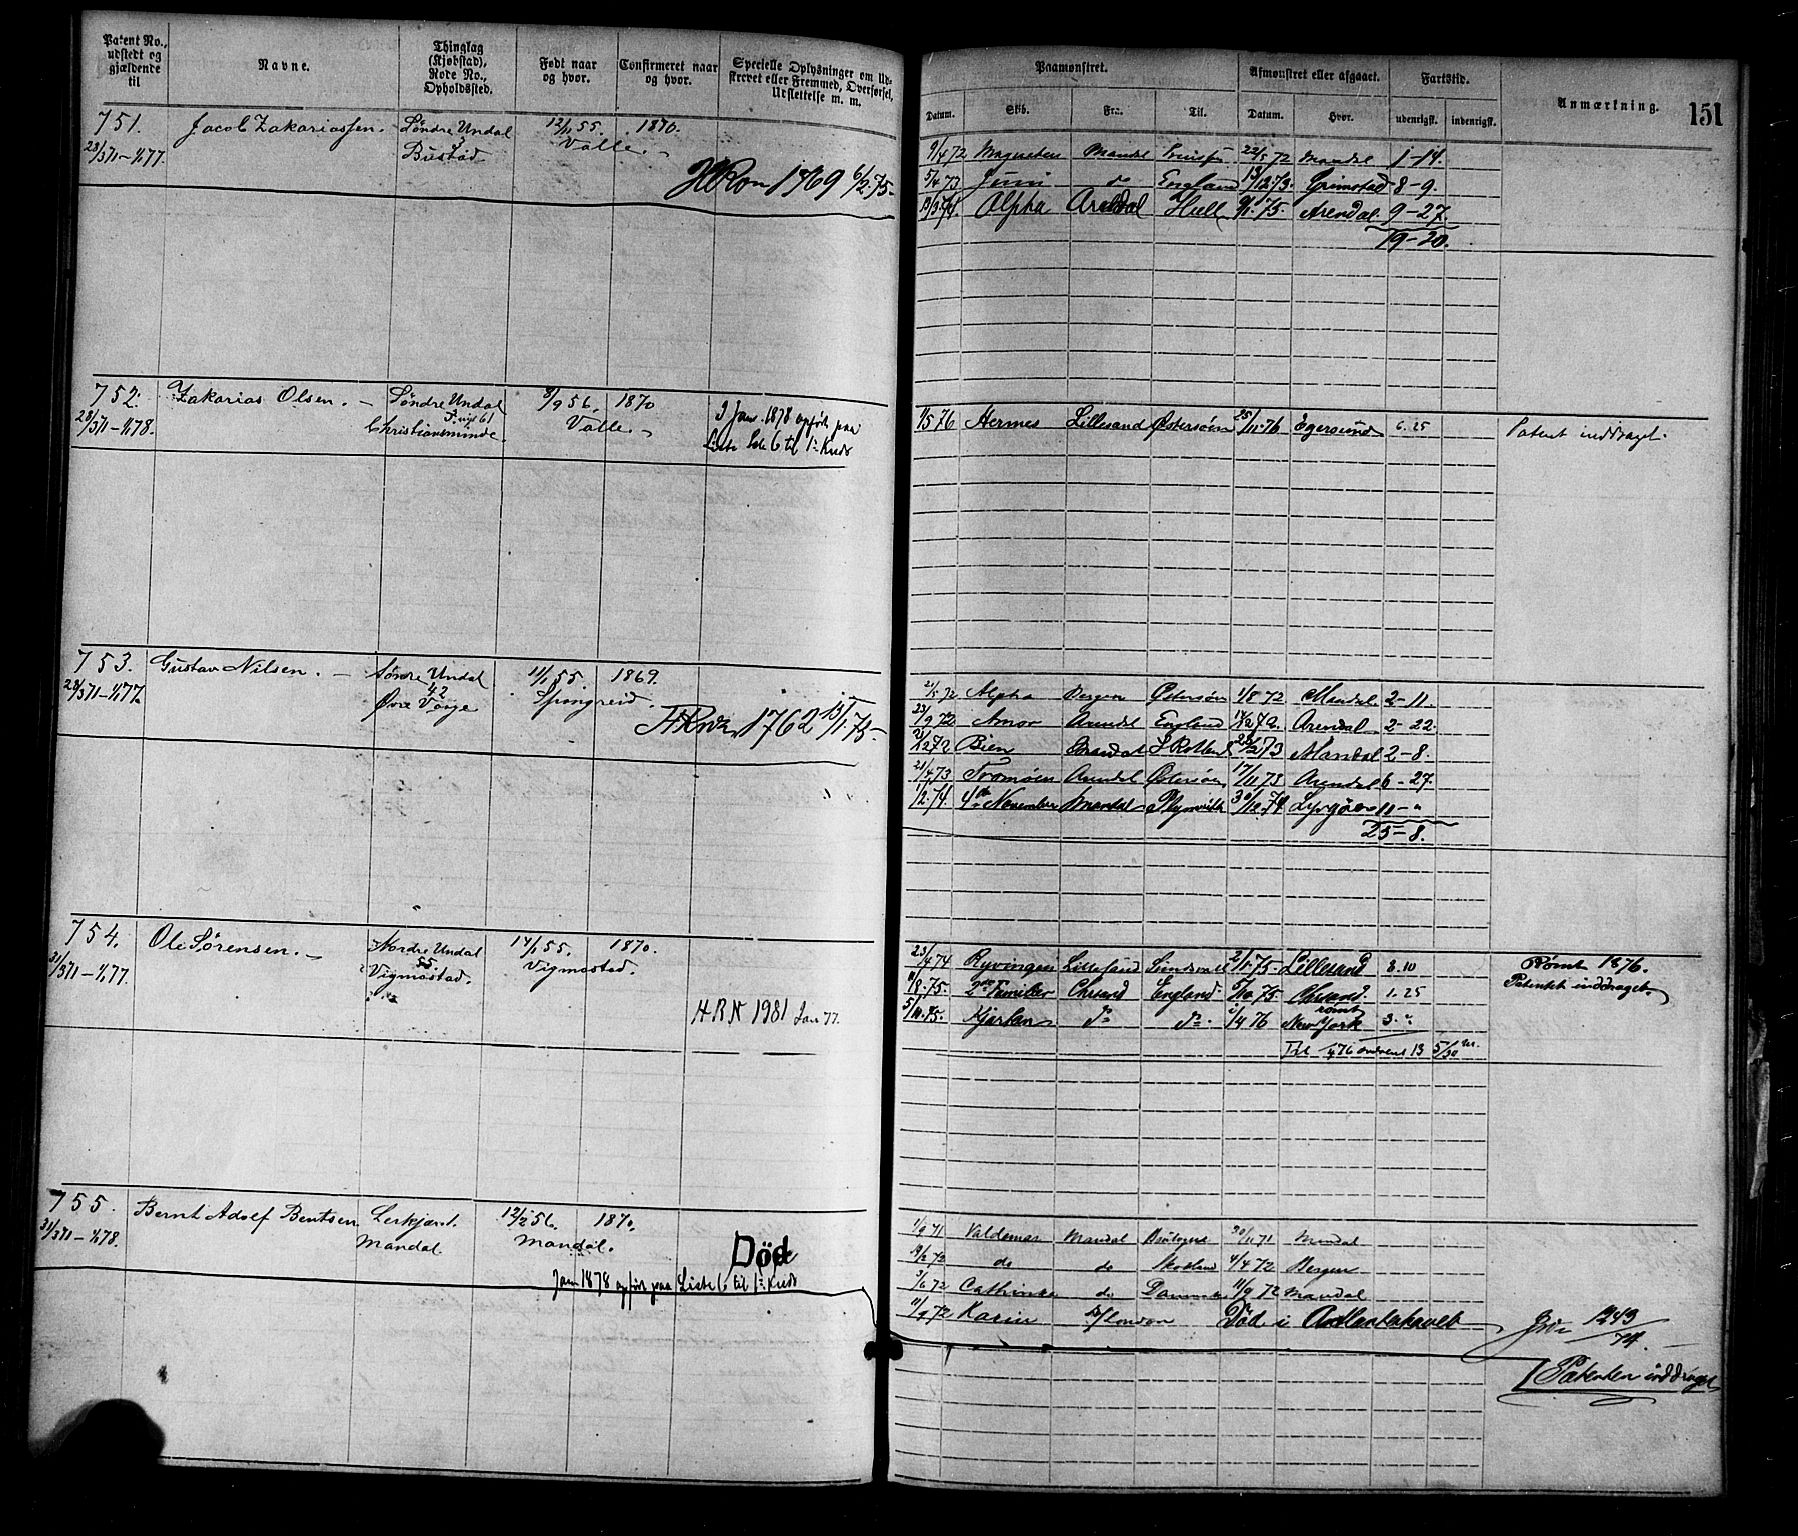 Patent No., udstedt og gjældende til
Navne.
Thinglag (Kjøbstad), Rode No., Opholdssted.
Født naar og hvor.
Confirmeret naar og hvor.
Specielle Oplysninger om Ud-
skrevet eller Fremmed, Overførsel,
Udslettelse m. m.
Paamønstret.
Afmønstret eller afgaaet.
Fartstid.
Anmærkning.
151
Datum. Skib. Fra: Til. Datum. Hvor. udenrigsk. indenrigsk.
751. Jacob Zakariassen. Søndre Undal 12/1 55. 1870.
28/3 71 – 1/1 77 Bustad Valle.
1469 6/2 75.
9/4 72 Mandal 22/5 72 Mandal 1-14.
5/4 73 Juni do England 13/12 73. Grimstad 8-9.
Alpha Arendal Hull 9/1 75. Arendal. 9-27.
19-20.
752. Zakarias Olsen. Søndre Undal 8/9 56. 1870
28/3 71 – 1/1 78. Christiansminde. Valle.
I Jan. 1878 opført paa
Liste Lole 6 til 1ste Kreds
1/5 76 Hermes Lillesand Østersøen 25/11 76 Egersund 6.25 Patent inddraget.
753. Gustav Nilsen. Søndre Undal 11/1 55 1869.
28/3 71 – 1/1 77. 42 Øvre Vaage Spangereid.
1762 13/1 75
21/5 72 Alpha Bergen Østersøen 1/8 72 Mandal 2-11.
23/9 72 Amor Arendal England Arendal. 2-22
Bien Mandal 2-8.
21/4 73 Tromøen Arendal Østersøen 17/11 73 Arendal 6-27.
1/2 74. 4de November Mandal Plymouth 30/12 74 Lyngør 11-"
25-8.
754. Ole Sørensen. Nordre Undal 14/1 55. 1870.
31/3 71 – 1/1 77. 55. Vigmostad. Vigmostad.
HRN 1981 Jan 77.
23/4 74 Ryvingen Lillesand Sundsvall 2/1 75. Lillesand 8.10 Rømt 1876.
11/8. 75. 2de Familier Chrsand England. 5/10 75 Chrsand. 1.25 Patentet inddraget.
5/10. 75. Kjartan Do Do 1/4 76 rømt New York 3."
Til 1/4 76 13 5/30
755. Bernt Adolf Bentsen Lerkjær 12/2 56. 1870.
31/3 71 – 1/1 78. Mandal Mandal.
Død
Jan 1878 opført paa Liste 6 til 1ste Kreds
1/9 71 Valdemar Mandal 30/11 71 Mandal
19/2 72 do do Skotland 4/4 72 Bergen
3/6 72 Cathinka do Danmark 11/9 72 Mandal
11/9 72 Karin London Død i Atlanterhavet 1243/74.
Patenten inddraget